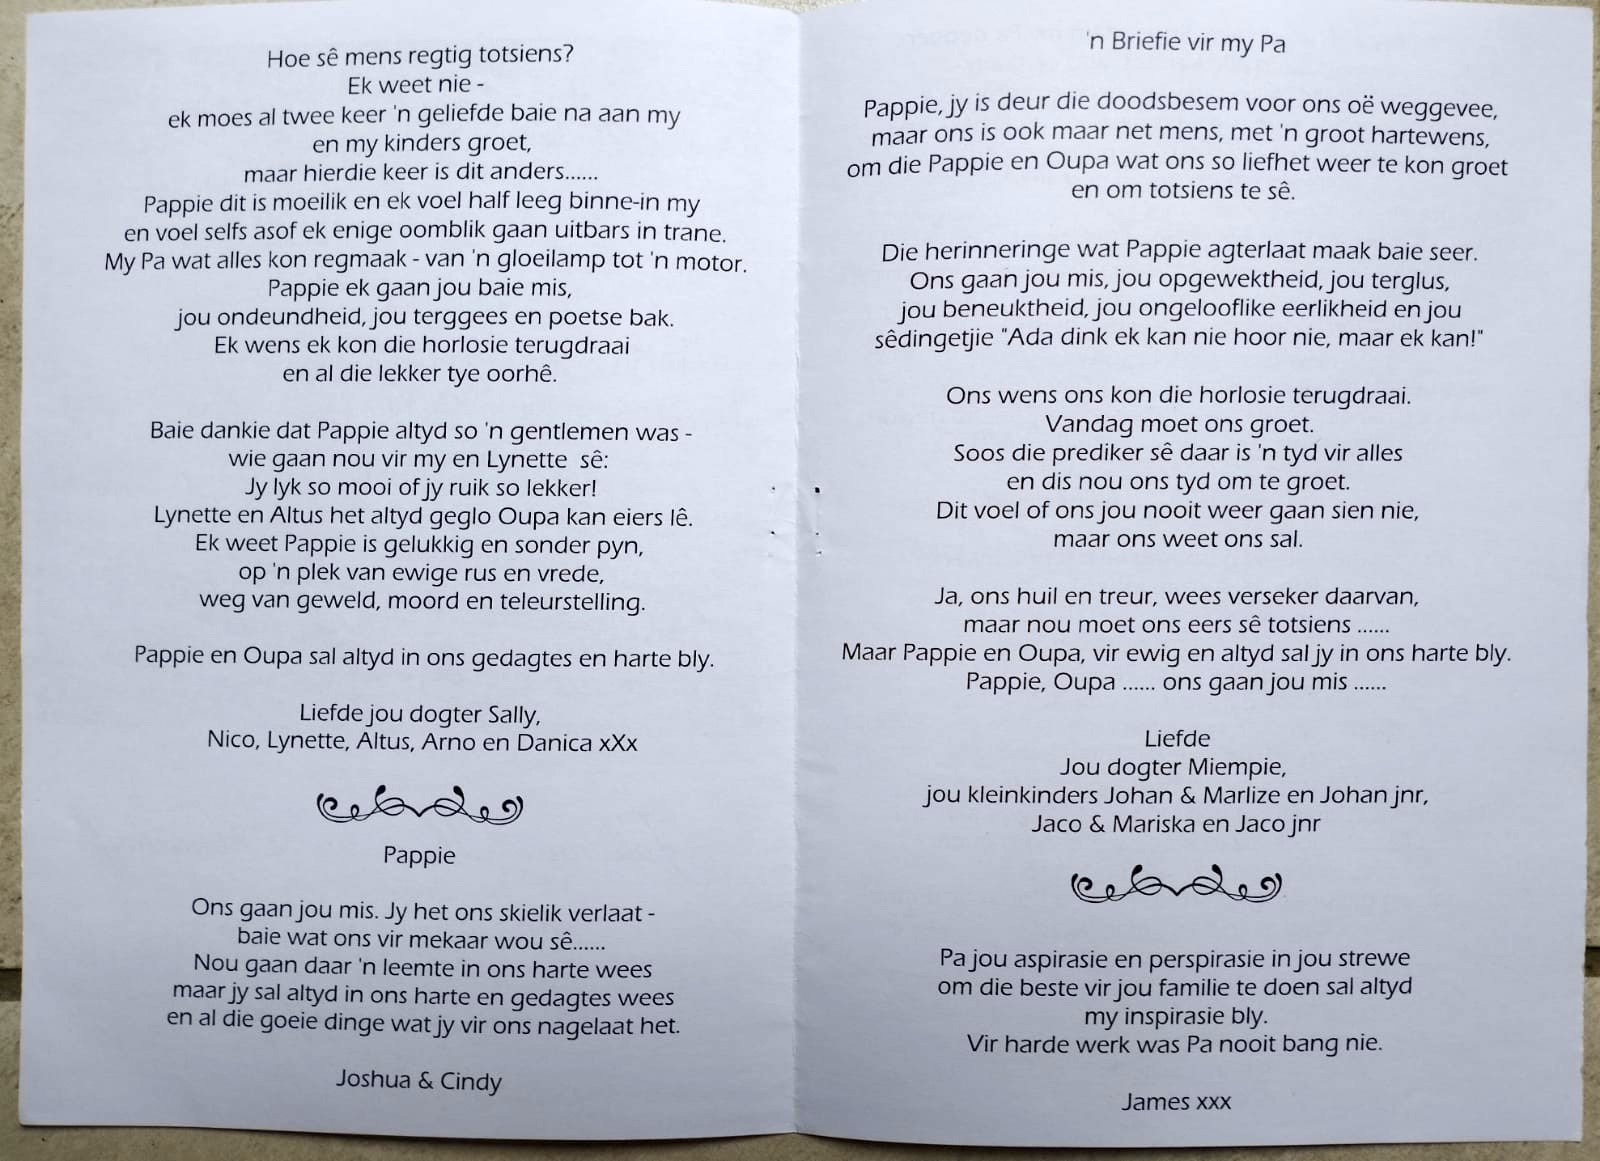 Hoe sê mens regtig totsiens?
Ek weet nie -
ek moes al twee keer 'n geliefde baie na aan my
en my kinders groet,
maar hierdie keer is dit anders......
Pappie dit is moeilik en ek voel half leeg binne-in my
en voel selfs asof ek enige oomblik gaan uitbars in trane.
My Pa wat alles kon regmaak - van 'n gloeilamp tot 'n motor.
Pappie ek gaan jou baie mis,
jou ondeundheid, jou terggees en poetse bak.
Ek wens ek kon die horlosie terugdraai
en al die lekker tye oorhê.
Baie dankie dat Pappie altyd so 'n gentlemen was -
wie gaan nou vir my en Lynette sê:
Jy lyk so mooi of jy ruik so lekker!
Lynette en Altus het altyd geglo Oupa kan eiers lê.
Ek weet Pappie is gelukkig en sonder pyn,
op 'n plek van ewige rus en vrede,
weg van geweld, moord en teleurstelling.
Pappie en Oupa sal altyd in ons gedagtes en harte bly.
Liefde jou dogter Sally,
Nico, Lynette, Altus, Arno en Danica xXx
Pappie
Ons gaan jou mis. Jy het ons skielik verlaat -
baie wat ons vir mekaar wou sê......
Nou gaan daar 'n leemte in ons harte wees
maar jy sal altyd in ons harte en gedagtes wees
en al die goeie dinge wat jy vir ons nagelaat het.
Joshua & Cindy
'n Briefie vir my Pa
Pappie, jy is deur die doodsbesem voor ons oë weggevee,
maar ons is ook maar net mens, met 'n groot hartewens,
om die Pappie en Oupa wat ons so liefhet weer te kon groet
en om totsiens te sê.
Die herinneringe wat Pappie agterlaat maak baie seer.
Ons gaan jou mis, jou opgewektheid, jou terglus,
jou beneuktheid, jou ongelooflike eerlikheid en jou
sêdingetjie "Ada dink ek kan nie hoor nie, maar ek kan!"
Ons wens ons kon die horlosie terugdraai.
Vandag moet ons groet.
Soos die prediker sê daar is 'n tyd vir alles
en dis nou ons tyd om te groet.
Dit voel of ons jou nooit weer gaan sien nie,
maar ons weet ons sal.
Ja, ons huil en treur, wees verseker daarvan,
maar nou moet ons eers sê totsiens ......
Maar Pappie en Oupa, vir ewig en altyd sal jy in ons harte bly.
Pappie, Oupa ...... ons gaan jou mis ......
Liefde
Jou dogter Miempie,
jou kleinkinders Johan & Marlize en Johan jnr,
Jaco & Mariska en Jaco jnr
Pa jou aspirasie en perspirasie in jou strewe
om die beste vir jou familie te doen sal altyd
my inspirasie bly.
Vir harde werk was Pa nooit bang nie.
James xxx